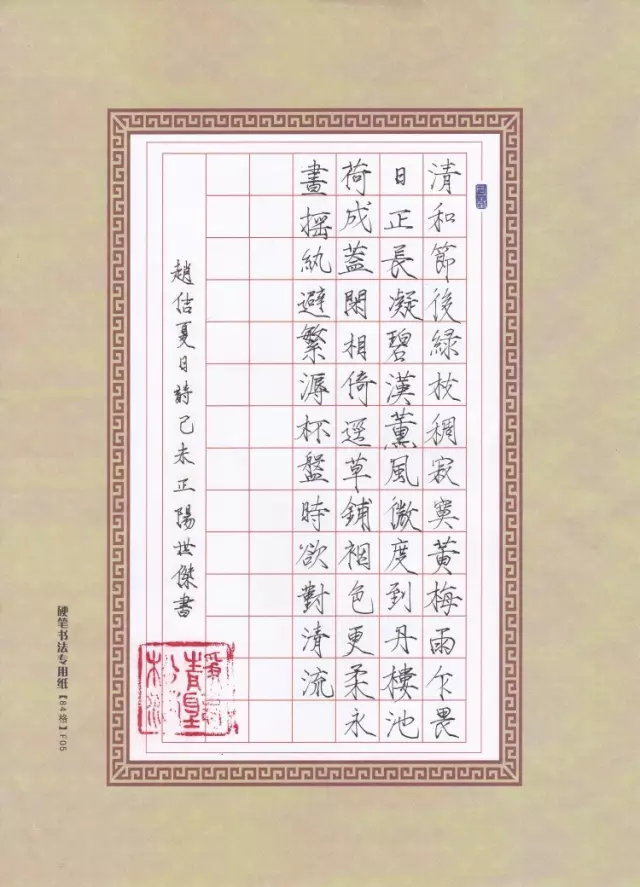 清和節後綠枝稠寂寞黃梅雨乍畏
日正長凝碧漢薰風微度到丹樓池
荷成蓋閑相倚逕草鋪裀色更柔永
晝搖紈避繁溽杯盤時欲對清流
趙佶夏日詩己未正陽世傑書
硬笔书法专用纸【84格】F05